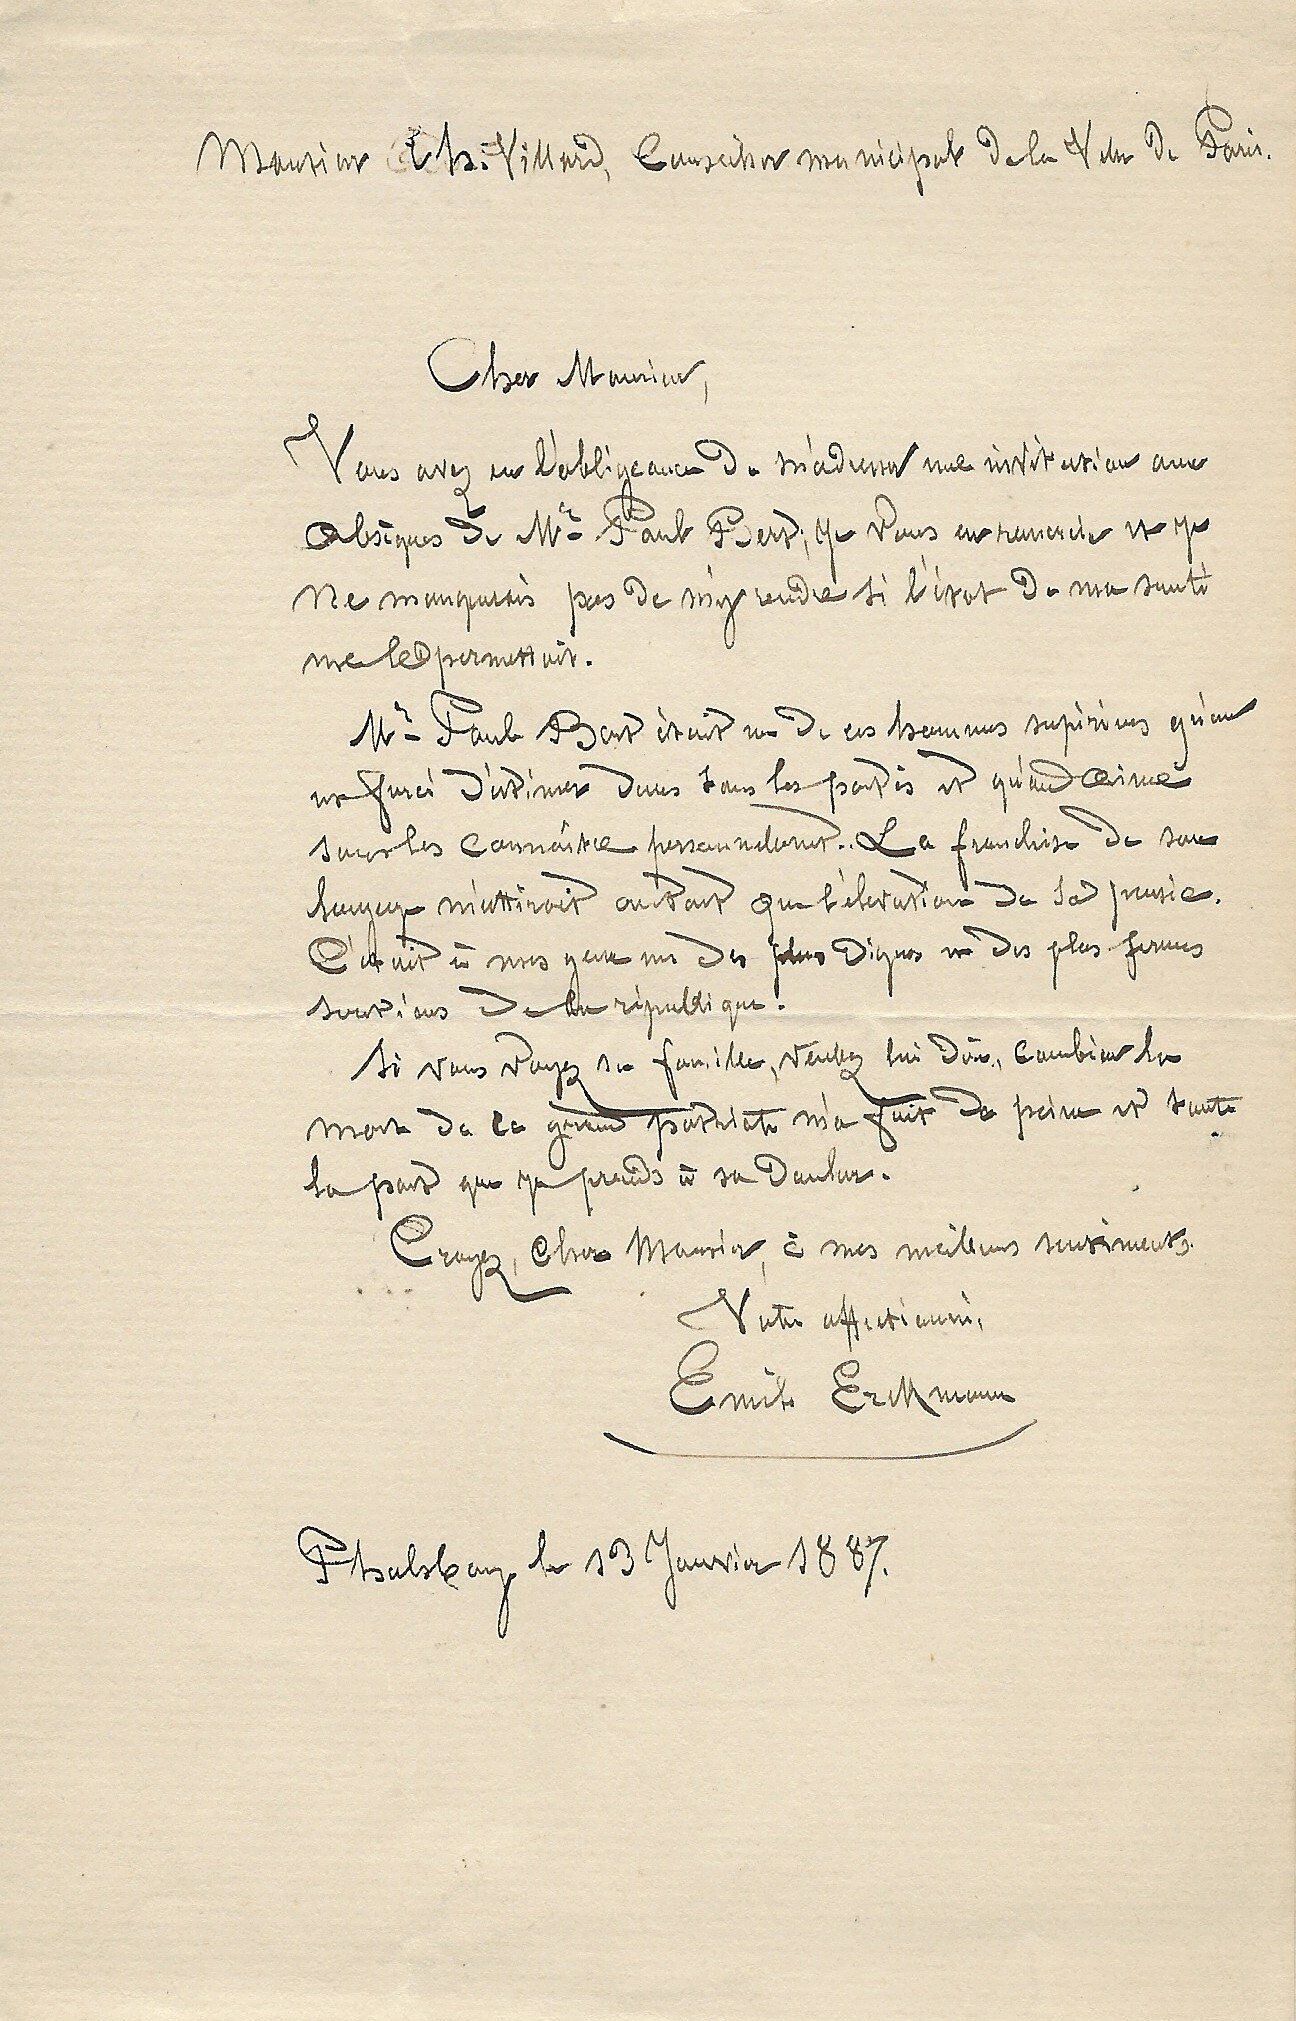 Monsieur Th. Villard, Conseiller municipal de la Ville de Paris.
Cher Monsieur,
Vous avez eu l'obligeance de m'adresser une invitation aux
obsèques de Mr Paul Bert; je vous en remercie et je
ne manquerais pas de m'y rendre si l'état de ma santé
me le permettait.
Mr Paul Bert était un de ces hommes supérieurs qu'on
est forcé d'estimer dans tous les partis et qu'on aime
sans les connaître personnellement. La franchise de son
langage m'attirait autant que l'élévation de sa pensée.
C'était à mes yeux un des plus dignes et des plus fermes
soutiens de la république.
Si vous voyez sa famille, veuillez lui dire, combien la
mort de ce grand patriote m'a fait de peine et toute
la part que je prends à sa douleur.
Croyez, cher Monsieur, à mes meilleurs sentiments.
Votre affectionné,
Emile Erckmann
Phalsbourg le 13 Janvier 1887.